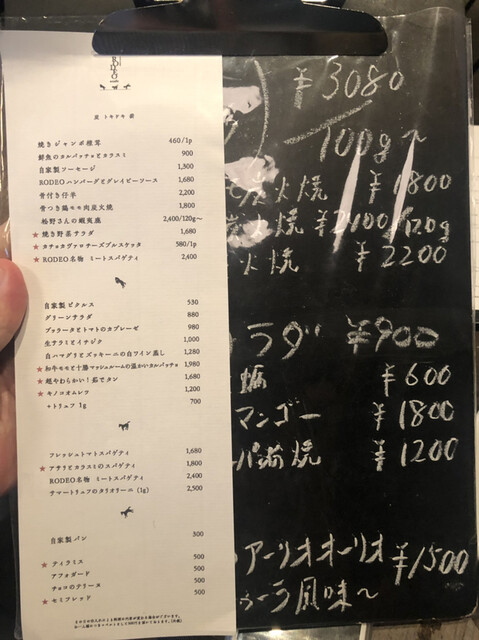 RODEO
炭 トモドモ 薪
焼きジャンボ椎茸 460/1p
鮮魚のカルパッチョとカラスミ 900
自家製ソーセージ 1,300
RODEOハンバーグとグレイビーソース 1,680
骨付き仔羊 2,200
骨つき鶏モモ肉炭火焼 1,800
松野さんの蝦夷鹿 2,400/120g〜
★ 焼き野菜サラダ 1,680
★ カチョカヴァロチーズブルスケッタ 580/1p
★ RODEO名物 ミートスパゲティ 2,400
自家製ピクルス 530
グリーンサラダ 880
ブッラータとトマトのカプレーゼ 980
生サラミとイチジク 1,000
白ハマグリとズッキーニの白ワイン蒸し 1,280
★ 和牛モモと十勝マッシュルームの温かいカルパッチョ 1,980
★ 超やわらかい!茹でタン 1,680
★ キノコオムレツ 1,200
+トリュフ 1g 700
フレッシュトマトスパゲティ 1,680
★ アサリとカラスミのスパゲティ 1,800
RODEO名物 ミートスパゲティ 2,400
サマートリュフのタリオリーニ (1g) 2,500
自家製パン 300
★ ティラミス 500
アフォガード 500
チョコのテリーヌ 500
★ セミフレッド 500
¥3080
100g〜
炭火焼 ¥1800
火焼 ¥2400/120g
火焼 ¥2200
ラダ ¥900
蠣 ¥600
マンゴー ¥1800
パ海焼 ¥1200
アーリオオーリオ ¥1500
ラ風味〜